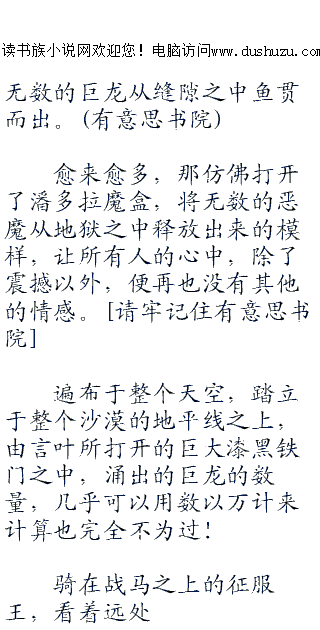 读书族小说网欢迎您！电脑访问www.dushuzu.com
无数的巨龙从缝隙之中鱼贯
而出。(有意思书院)
愈来愈多，那仿佛打开
了潘多拉魔盒，将无数的恶
魔从地狱之中释放出来的模
样，让所有人的心中，除了
震撼以外，便再也没有其他
的情感。[请牢记住有意思书
院]
遍布于整个天空，踏立
于整个沙漠的地平线之上，
由言叶所打开的巨大漆黑铁
门之中，涌出的巨龙的数
量，几乎可以用数以万计来
计算也完全不为过！
骑在战马之上的征服
王，看着远处